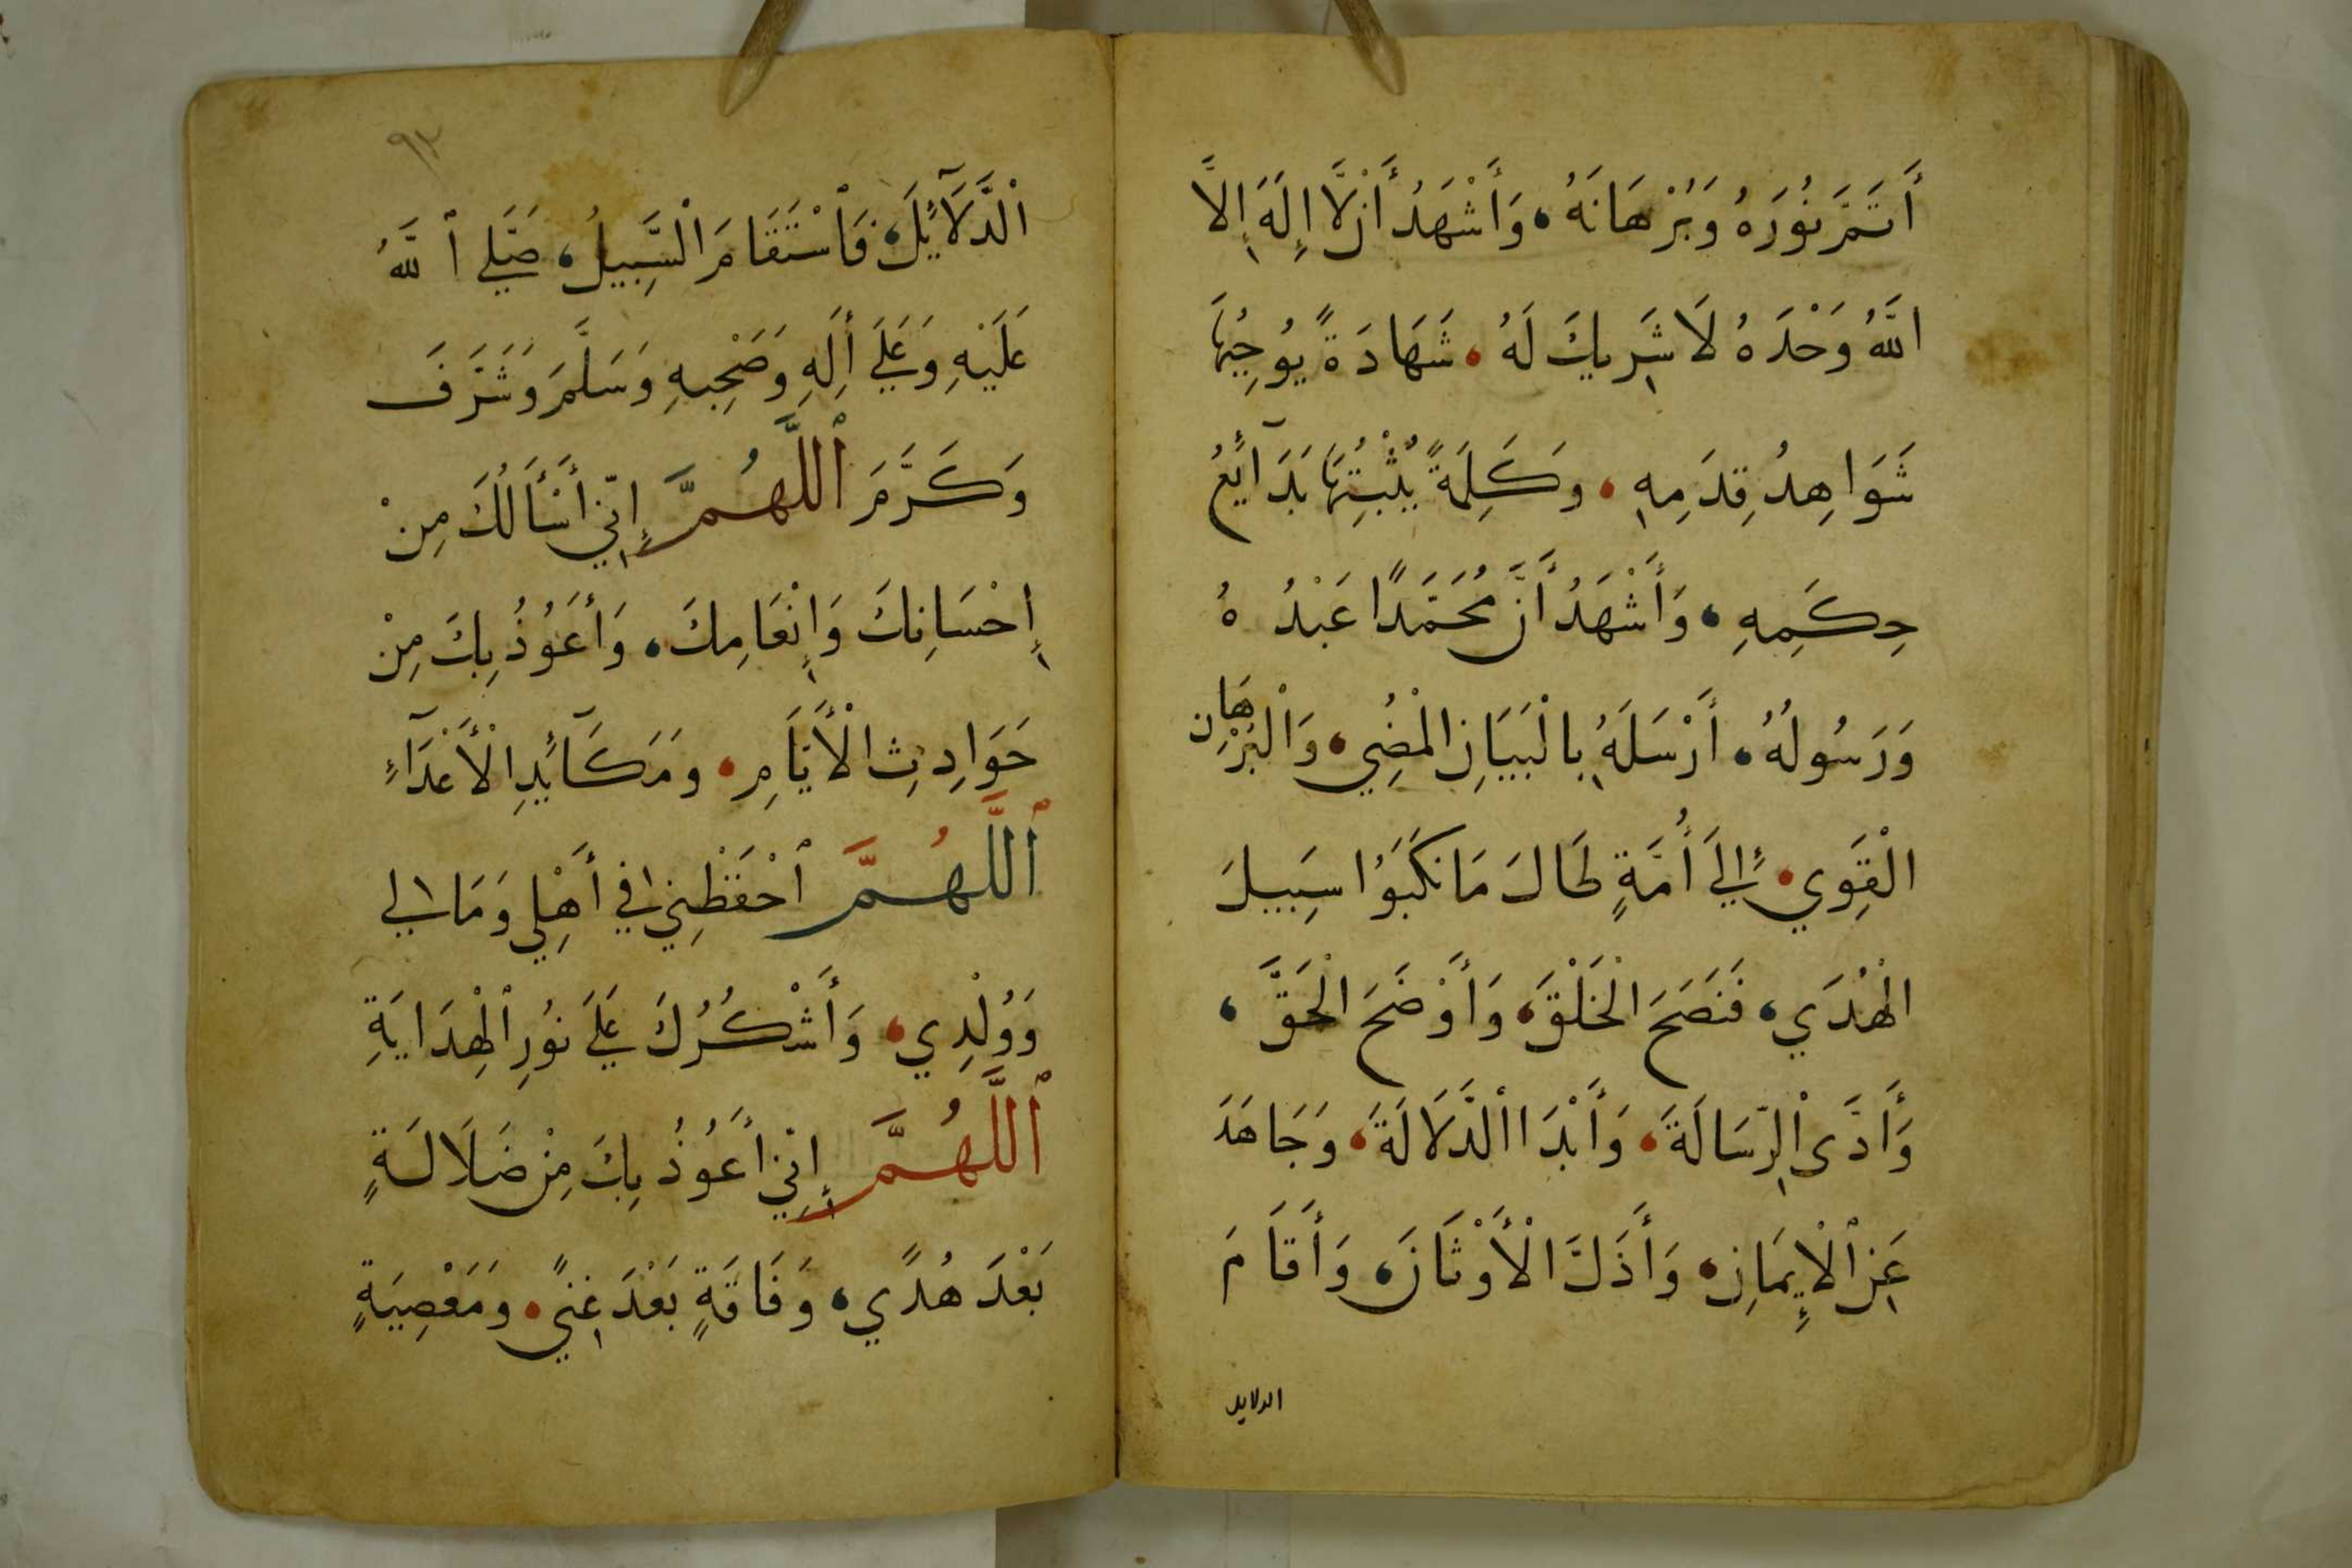 أَتَمَّ نُورَهُ وَبُرْهَانَهُ، وَأَشْهَدُ أَنْ لَّا إِلَهَ إِلَّا
اللَّهُ وَحْدَهُ لَا شَرِيكَ لَهُ، شَهَادَةً يُوجِبُهَا
شَوَاهِدُ قِدَمِهِ، وَكَلِمَةً يُثْبِتُهَا بَدَآئِعُ
حِكَمِهِ، وَأَشْهَدُ أَنَّ مُحَمَّدًا عَبْدُهُ
وَرَسُولُهُ، أَرْسَلَهُ بِالْبَيَانِ الْمُضِي، وَالْبُرْهَانِ
الْقَوِي، إِلَى أُمَّةٍ لَحَالَ مَا نَكَبُوا سَبِيلَ
الْهُدَي، فَنَصَحَ الْخَلْقَ، وَأَوْضَحَ الْحَقَّ،
وَأَدَّى الرِّسَالَةَ، وَأَبْدَا الدَّلَالَةَ، وَجَاهَدَ
عَنِ الْإِيمَانِ، وَأَذَلَّ الْأَوْثَانَ، وَأَقَامَ
الدلايل
٩٣
الدَّلَآئِلَ، فَاسْتَقَامَ السَّبِيلُ، صَلَّي اللَّهُ
عَلَيْهِ وَعَلَي أَلِهِ وَصَحْبِهِ وَسَلَّمَ وَشَرَّفَ
وَكَرَّمَ اللَّهُمَّ إِنِّي أَسْأَلُكَ مِنْ
إِحْسَانِكَ وَإِنْعَامِكَ، وَأَعُوذُ بِكَ مِنْ
حَوَادِثِ الْأَيَّامِ، وَمَكَآئِدِ الْأَعْدَآءِ
اللَّهُمَّ احْفَظْنِي فِي أَهْلِي وَمَالِي
وَوُلْدِي، وَأَشْكُرُكَ عَلَي نُورِ الْهِدَايَةِ
اللَّهُمَّ إِنِّي أَعُوذُ بِكَ مِنْ ضَلَالَةٍ
بَعْدَ هُدًي، وَفَاقَةٍ بَعْدَ غِنًي، وَمَعْصِيَةٍ